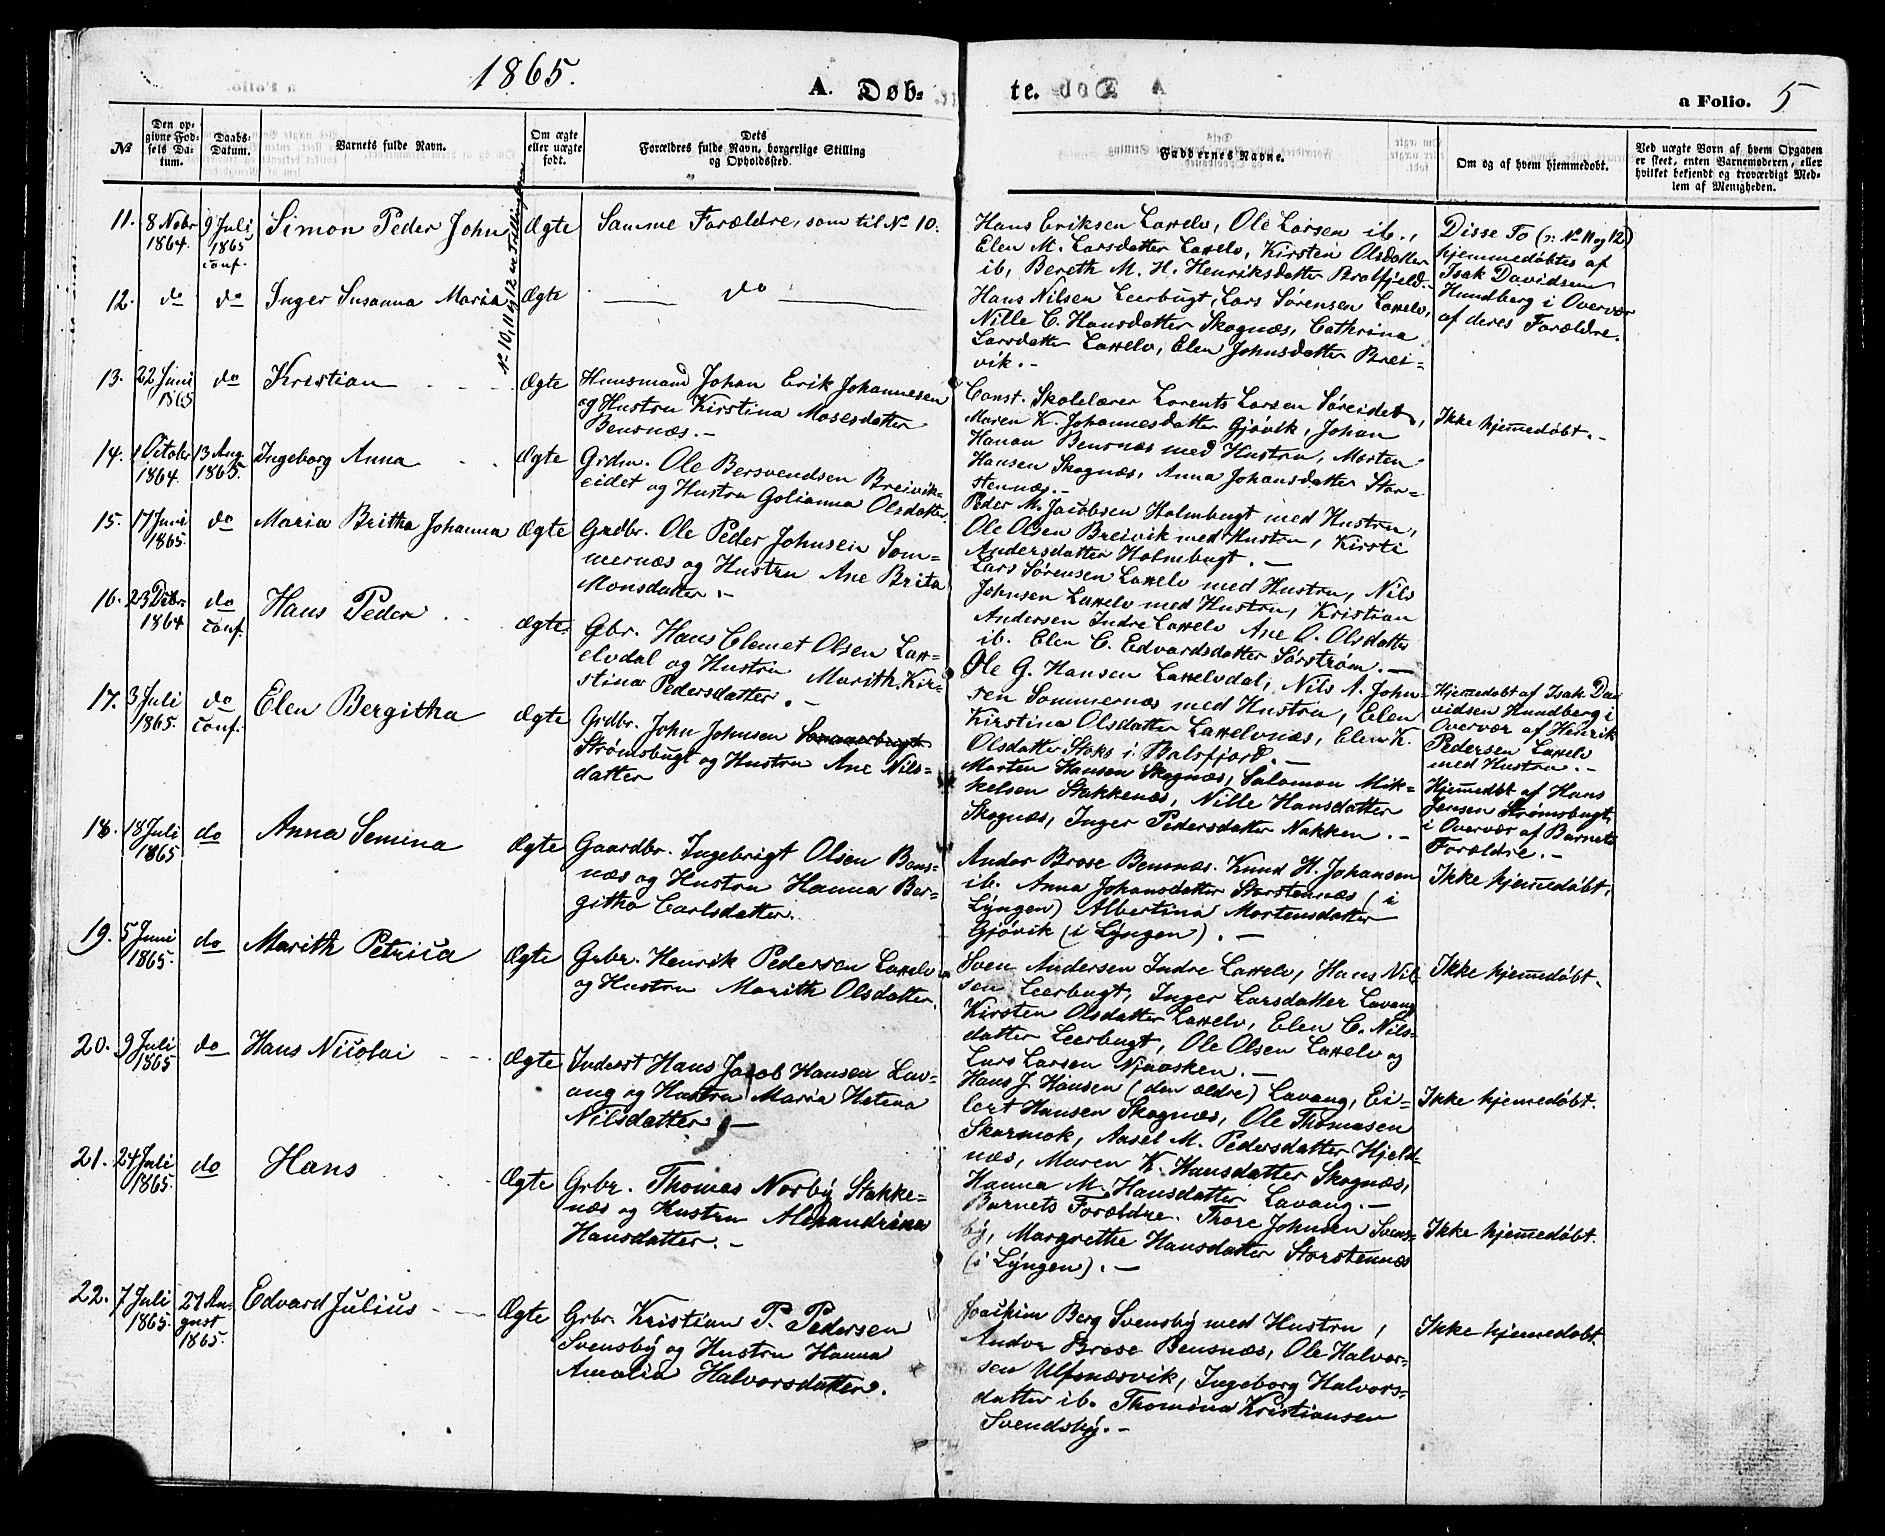 1865.
A. Døb-
te.
a Folio. 5
№
Den op-
givne Fød-
sels Da-
tum.
Daabs-
Datum.
Barnets fulde Navn.
Om ægte
eller uægte
født.
Dets
Forældres fulde Navn, borgerlige Stilling
og Opholdssted.
Faddernes Navne.
Om og af hvem hjemmedøbt.
Ved uægte Børn af hvem Opgaven
er skeet, enten Barnemoderen, eller
hvilket bekjendt og troværdigt Med-
lem af Menigheden.
No 10, 11 og 12 er Trillinger
11.
8 Nobr
1864.
9 Juli
1865
conf.
Simon Peder John
Ægte
Samme Forældre, som til No 10.
Hans Eriksen Laxelv, Ole Larsen ib.,
Elen M. Larsdatter Laxelv, Kirsten Olsdatter
ib, Bereth M. H. Henriksdatter Bralfjeld.
Disse To (ɔ: No 11 og 12)
hjemmedøbtes af
Isak Davidsen
Hundberg i Overvær
af deres Forældre.
12.
do
do
Inger Susanna Maria
Ægte
do
Hans Nilsen Leerbugt, Lars Sørensen Laxelv,
Nille C. Hansdatter Skognæs, Cathrina
Larsdatter Laxelv, Elen Johnsdatter Brei-
vik. -
13.
22 Juni
1865
do
Kristian
Ægte
Huusmand Johan Erik Johannesen
og Hustru Kirstina Mosesdatter
Bensnæs. -
Const. Skolelærer Lorents Larsen Søreidet,
Maren K. Johannesdatter Gjøvik, Johan
Hanan Bensnæs med Hustru, Morten
Hansen Skognæs, Anna Johansdatter Stor-
stennæs. -
Ikke hjemmedøbt. -
14.
1 October
1864.
13 Aug
1865.
Ingeborg Anna
Ægte
Grdm. Ole Bersvendsen Breivik-
eidet og Hustru Golianna Olsdatter.
Peder M. Jacobsen Holmbugt med Hustru,
Ole Olsen Breivik med Hustru, Kirsti
Andersdatter Holmbugt. -
15.
17 Juni
1865.
do
Maria Britha Johanna
Ægte
Grdbr. Ole Peder Johnsen Som-
mernæs og Hustru Ane Brita
Monsdatter. -
Lars Sørensen Laxelv med Hustru, Nils
Johnsen Laxelv med Hustru, Kristian
Andersen Indre Laxelv Ane O. Olsdatter
ib. Elen C. Edvardsdatter Sørstrøm. -
16.
23 Debr
1864
do
conf.
Hans Peder
Ægte
Gbr. Hans Clemet Olsen Lax-
elvdal og Hustru Marith Kir-
stina Pedersdatter. -
Ole G. Hansen Laxelvdal, Nils A. John-
sen Sommernæs med Hustru, Elen
Kirstina Olsdatter Laxelvnæs, Elen K.
Olsdatter Stoks i Balsfjord. -
Hjemmedøbt af Isak Da-
vidsen Hundberg i
Overvær af Henrik
Pedersen Laxelv
med Hustru. -
17.
3 Juli
1865.
do
conf.
Elen Bergitha
Ægte
Grdbr. John Johnsen Sommerbugt
Strømsbugt og Hustru Ane Nils-
datter
Morten Hansen Skognæs, Salomon Mik-
kelsen Stakkenæs, Nille Hansdatter
Skognæs, Inger Pedersdatter Nakken. -
Hjemmedbt af Hans
Jensen Strømsbugt,
i Overvær af Barnets
Forældre. -
18.
18 Juli
1865
do
Anna Semina
Ægte
Gaardbr. Ingebrigt Olsen Bens-
næs og Hustru Hanna Ber-
githa Carlsdatter.
Andor Brose Bensnæs. Knud H. Johansen
ib. Anna Johansdatter Storstennæs (i
Lyngen) Albertina Mortensdatter
Gjøvik (i Lyngen). -
Ikke hjemmedøbt.
19.
5 Juni
1865.
do
Marith Petrica
Ægte
Grbr. Henrik Pedersen Laxelv
og Hustru Marith Olsdatter.
Sven Andersen Indre Laxelv, Hans Nil-
sen Leerbugt, Inger Larsdatter Lavang
Kirsten Olsdatter Laxelv, Elen C. Nils-
datter Leerbugt, Ole Olsen Laxelv og
Lars Larsen Njaasken. -
Ikke hjemmedøbt.
20.
9 Juli
1865
do
Hans Nicolai
Ægte
Inderst Hans Jacob Hansen Lav-
ang og Hustru Maria Helena
Nilsdatter. -
Hans J. Hansen (den ældre) Lavang, Ei-
lert Hansen Skognæs, Ole Thomasen
Skarmok, Aasel M. Pedersdatter Hjeld-
næs, Maren K. Hansdatter Skognæs,
Hanna M. Hansdatter Lavang. -
Ikke hjemmedøbt.
21.
24 Juli
1865.
do
Hans
Ægte
Grbr. Thomas Norby Stakke-
næs og Hustru Alexandrina
Hansdatter. -
Barnets Forældre. Thore Johnsen Svens-
by, Margrethe Hansdatter Storstennæs
(i Lyngen). -
Ikke hjemmedøbt.
22.
7 Juli
1865.
27 Au-
gust
1865.
Edvard Julius
Ægte
Grbr. Kristian P. Pedersen
Svensby og Hustru Hanna
Amalia Halvorsdatter.
Joachim Berg Svensby med Hustru,
Andor Brose Bensnæs, Ole Halvor-
sen Ulfsnæsvik, Ingeborg Halvors-
datter ib. Thomina Kristiansen
Svendsby. -
Ikke hjemmedøbt.